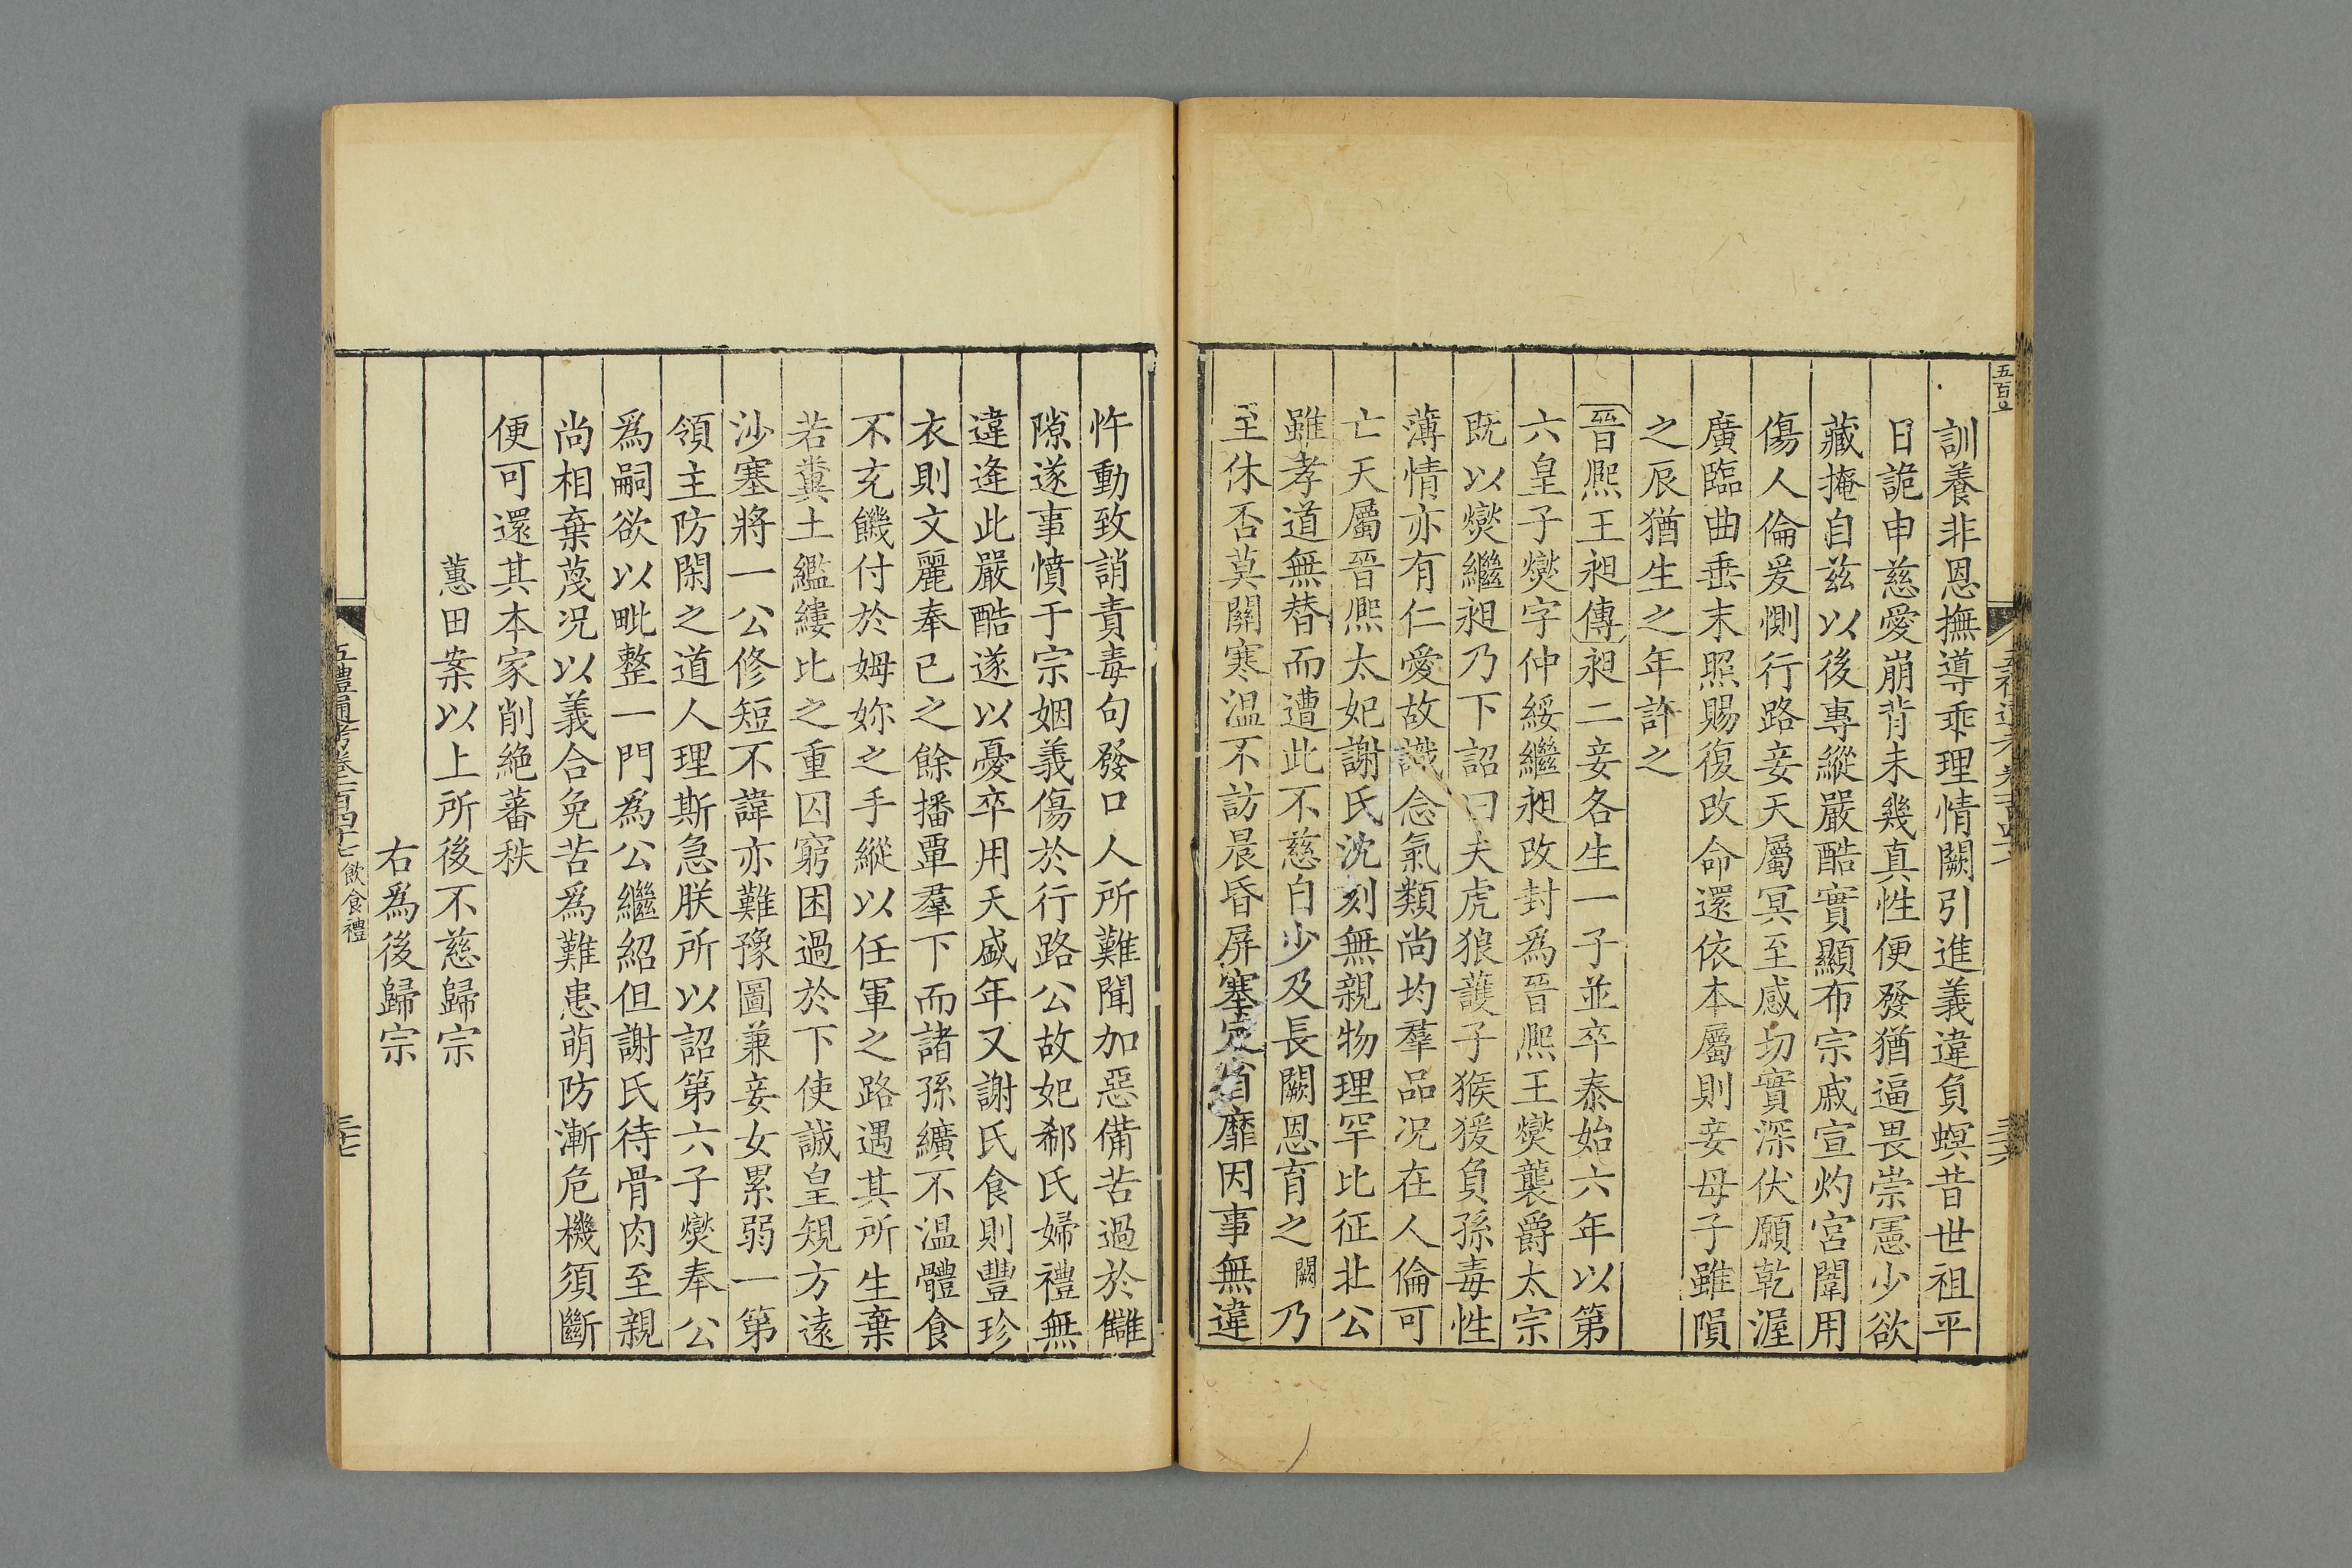 訓養非恩撫導乖理情闕引進義違負螟昔世祖平
日詭申慈愛崩背未幾真性便發猶逼畏崇憲少欲
藏掩自兹以後專縱嚴酷實顯布宗戚宣灼宮闈用
傷人倫爰惻行路妾天屬冥至感切實深伏願乾渥
廣臨曲垂末照賜復改命還依本屬則妾母子雖隕
之辰猶生之年許之
晉熙王昶傳昶二妾各生一子並卒泰始六年以第
六皇子燮字仲綏繼昶改封爲晉熙王燮襲爵太宗
既以燮繼昶乃下詔曰夫虎狼護子猴猨負孫毒性
薄情亦有仁愛故識念氣類尚均羣品况在人倫可
亡天屬晉熙太妃謝氏沈刻無親物理罕比征北公
雖孝道無替而遭此不慈自少及長闕恩育之闕乃
至休否莫關寒温不訪晨昏屏塞定省靡因事無違
忤動致誚責毒句發口人所難聞加惡備苦過於讎
隙遂事憤于宗姻義傷於行路公故妃郗氏婦禮無
違逢此嚴酷遂以憂卒用夭盛年又謝氏食則豐珍
衣則文麗奉已之餘播覃羣下而諸孫纊不温體食
不充饑付於姆妳之手縱以任軍之路遇其所生棄
若糞土繿縷比之重囚窮困過於下使誠皇規方遠
沙塞將一公修短不諱亦難豫圖兼妾女累弱一第
領主防閑之道人理斯急朕所以詔第六子燮奉公
爲嗣欲以毗整一門爲公繼紹但謝氏待骨肉至親
尚相棄蔑况以義合免苦爲難患萌防漸危機須斷
便可還其本家削絶蕃秩
蕙田案以上所後不慈歸宗
右爲後歸宗
五禮通考卷一百四十七 飲食禮
三十七